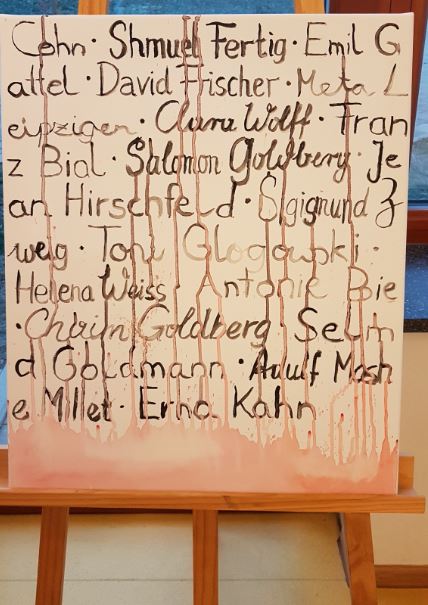 Cohn · Shmuel Fertig · Emil G
attel · David Fischer · Meta L
eipziger · Clara Wolff · Fran
z Bial · Salomon Goldberg · Je
an Hirschfeld · Sigismund Z
weig · Toni Glogowski ·
Helena Weiss · Antonie Bie
· Chaim Goldberg · Selm
a Goldmann · Adulf Mosh
e Millet · Erna Kahn